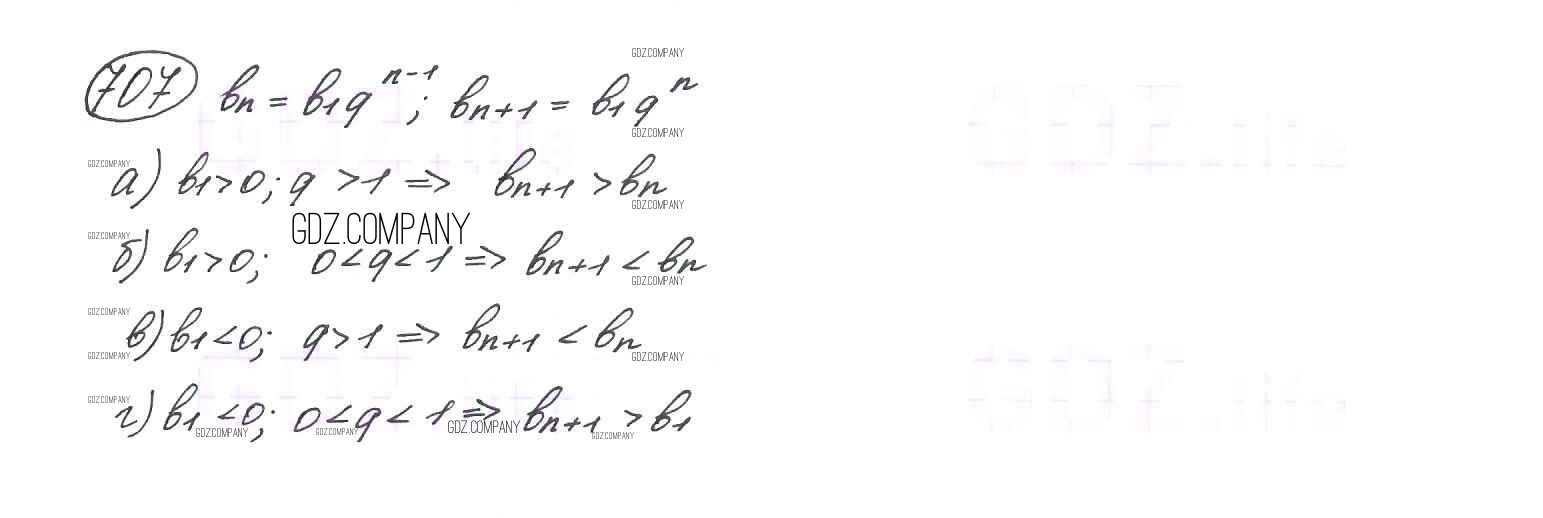 GDZ.COMPANY
707 bn = b1q^(n-1); bn+1 = b1q^n
GDZ.COMPANY
GDZ.COMPANY
а) b1>0; q >1 => bn+1 > bn
GDZ.COMPANY
GDZ.COMPANY
GDZ.COMPANY
б) b1>0; 0<q<1 => bn+1 < bn
GDZ.COMPANY
GDZ.COMPANY
в) b1<0; q>1 => bn+1 < bn
GDZ.COMPANY
GDZ.COMPANY
GDZ.COMPANY
г) b1<0; 0<q<1 => bn+1 > b1
GDZ.COMPANY
GDZ.COMPANY
GDZ.COMPANY
GDZ.COMPANY